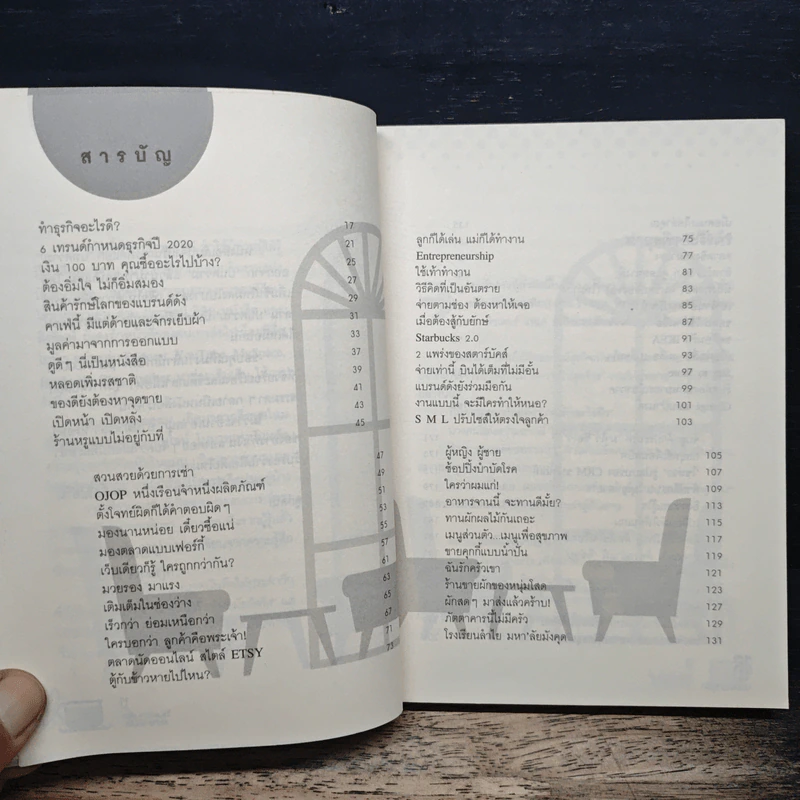 สารบัญ
ทำธุรกิจอะไรดี? 17
6 เทรนด์กำหนดธุรกิจปี 2020 21
เงิน 100 บาท คุณซื้ออะไรไปบ้าง? 25
ต้องอิ่มใจ ไม่ก็อิ่มสมอง 27
สินค้ารักษ์โลกของแบรนด์ดัง 29
คาเฟ่นี้ มีแต่ด้ายและจักรเย็บผ้า 31
มูลค่ามาจากการออกแบบ 33
ดูดีๆ นี่เป็นหนังสือ 37
หลอดเพิ่มรสชาติ 39
ของดียังต้องหาจุดขาย 41
เปิดหน้า เปิดหลัง 43
ร้านหรูแบบไม่อยู่กับที่ 45
สวนสวยด้วยการเช่า 47
OJOP หนึ่งเรือนจำหนึ่งผลิตภัณฑ์ 49
ตั้งโจทย์ผิดก็ได้คำตอบผิดๆ 51
มองนานหน่อย เดี๋ยวซื้อแน่ 53
มองตลาดแบบเฟอร์กี้ 55
เว็บเดียวก็รู้ ใครถูกกว่ากัน? 57
มวยรอง มาแรง 61
เติมเต็มในช่องว่าง 63
เร็วกว่า ย่อมเหนือกว่า 65
ใครบอกว่า ลูกค้าคือพระเจ้า! 67
ตลาดนัดออนไลน์ สไตล์ ETSY 71
ตู้กับข้าวหายไปไหน? 73
ลูกก็ได้เล่น แม่ก็ได้ทำงาน 75
Entrepreneurship 77
ใช้เท้าทำงาน 81
วิธีคิดที่เป็นอันตราย 83
จ่ายตามช่อง ต้องหาให้เจอ 85
เมื่อต้องสู้กับยักษ์ 87
Starbucks 2.0 91
2 แพร่งของสตาร์บัคส์ 93
จ่ายเท่านี้ บินได้เต็มที่ไม่มีอั้น 97
แบรนด์ดังยังร่วมมือกัน 99
งานแบบนี้ จะมีใครทำให้หนอ? 101
S M L ปรับไซส์ให้ตรงใจลูกค้า 103
ผู้หญิง ผู้ชาย 105
ช้อปปิ้งบำบัดโรค 107
ใครว่าผมแก่! 109
อาหารจานนี้ จะทานดีมั้ย? 113
ทานผักผลไม้กันเถอะ 115
เมนูส่วนตัว...เมนูเพื่อสุขภาพ 117
ขายคุกกี้แบบน้ำปั่น 119
ฉันรักครัวเขา 121
ร้านขายผักของหนุ่มโสด 123
ผักสดๆ มาส่งแล้วคร้าบ! 127
ภัตตาคารนี้ไม่มีครัว 129
โรงเรียนลำไย มหา'ลัยมังคุด 131